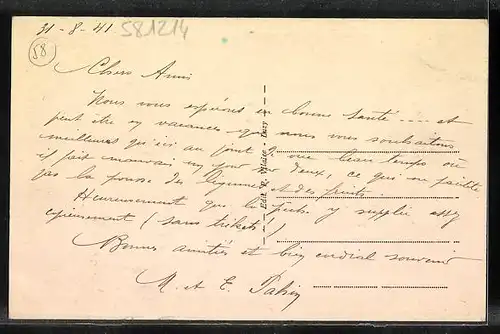 31-8-41 581214
58
Chers Amis
Nous vous espérons en bonne santé ---- et
peut être en vacances que nous vous souhaitons
meilleures qu'ici au point de vue beau temps où
il fait mauvais un jour sur deux, ce qui ne facilite
pas la pousse des légumes et des fruits.
Heureusement que le y supplée assez
(sans tickets!)
Bonnes amitiés et bien cordial souvenir
M. et E.
Edit.